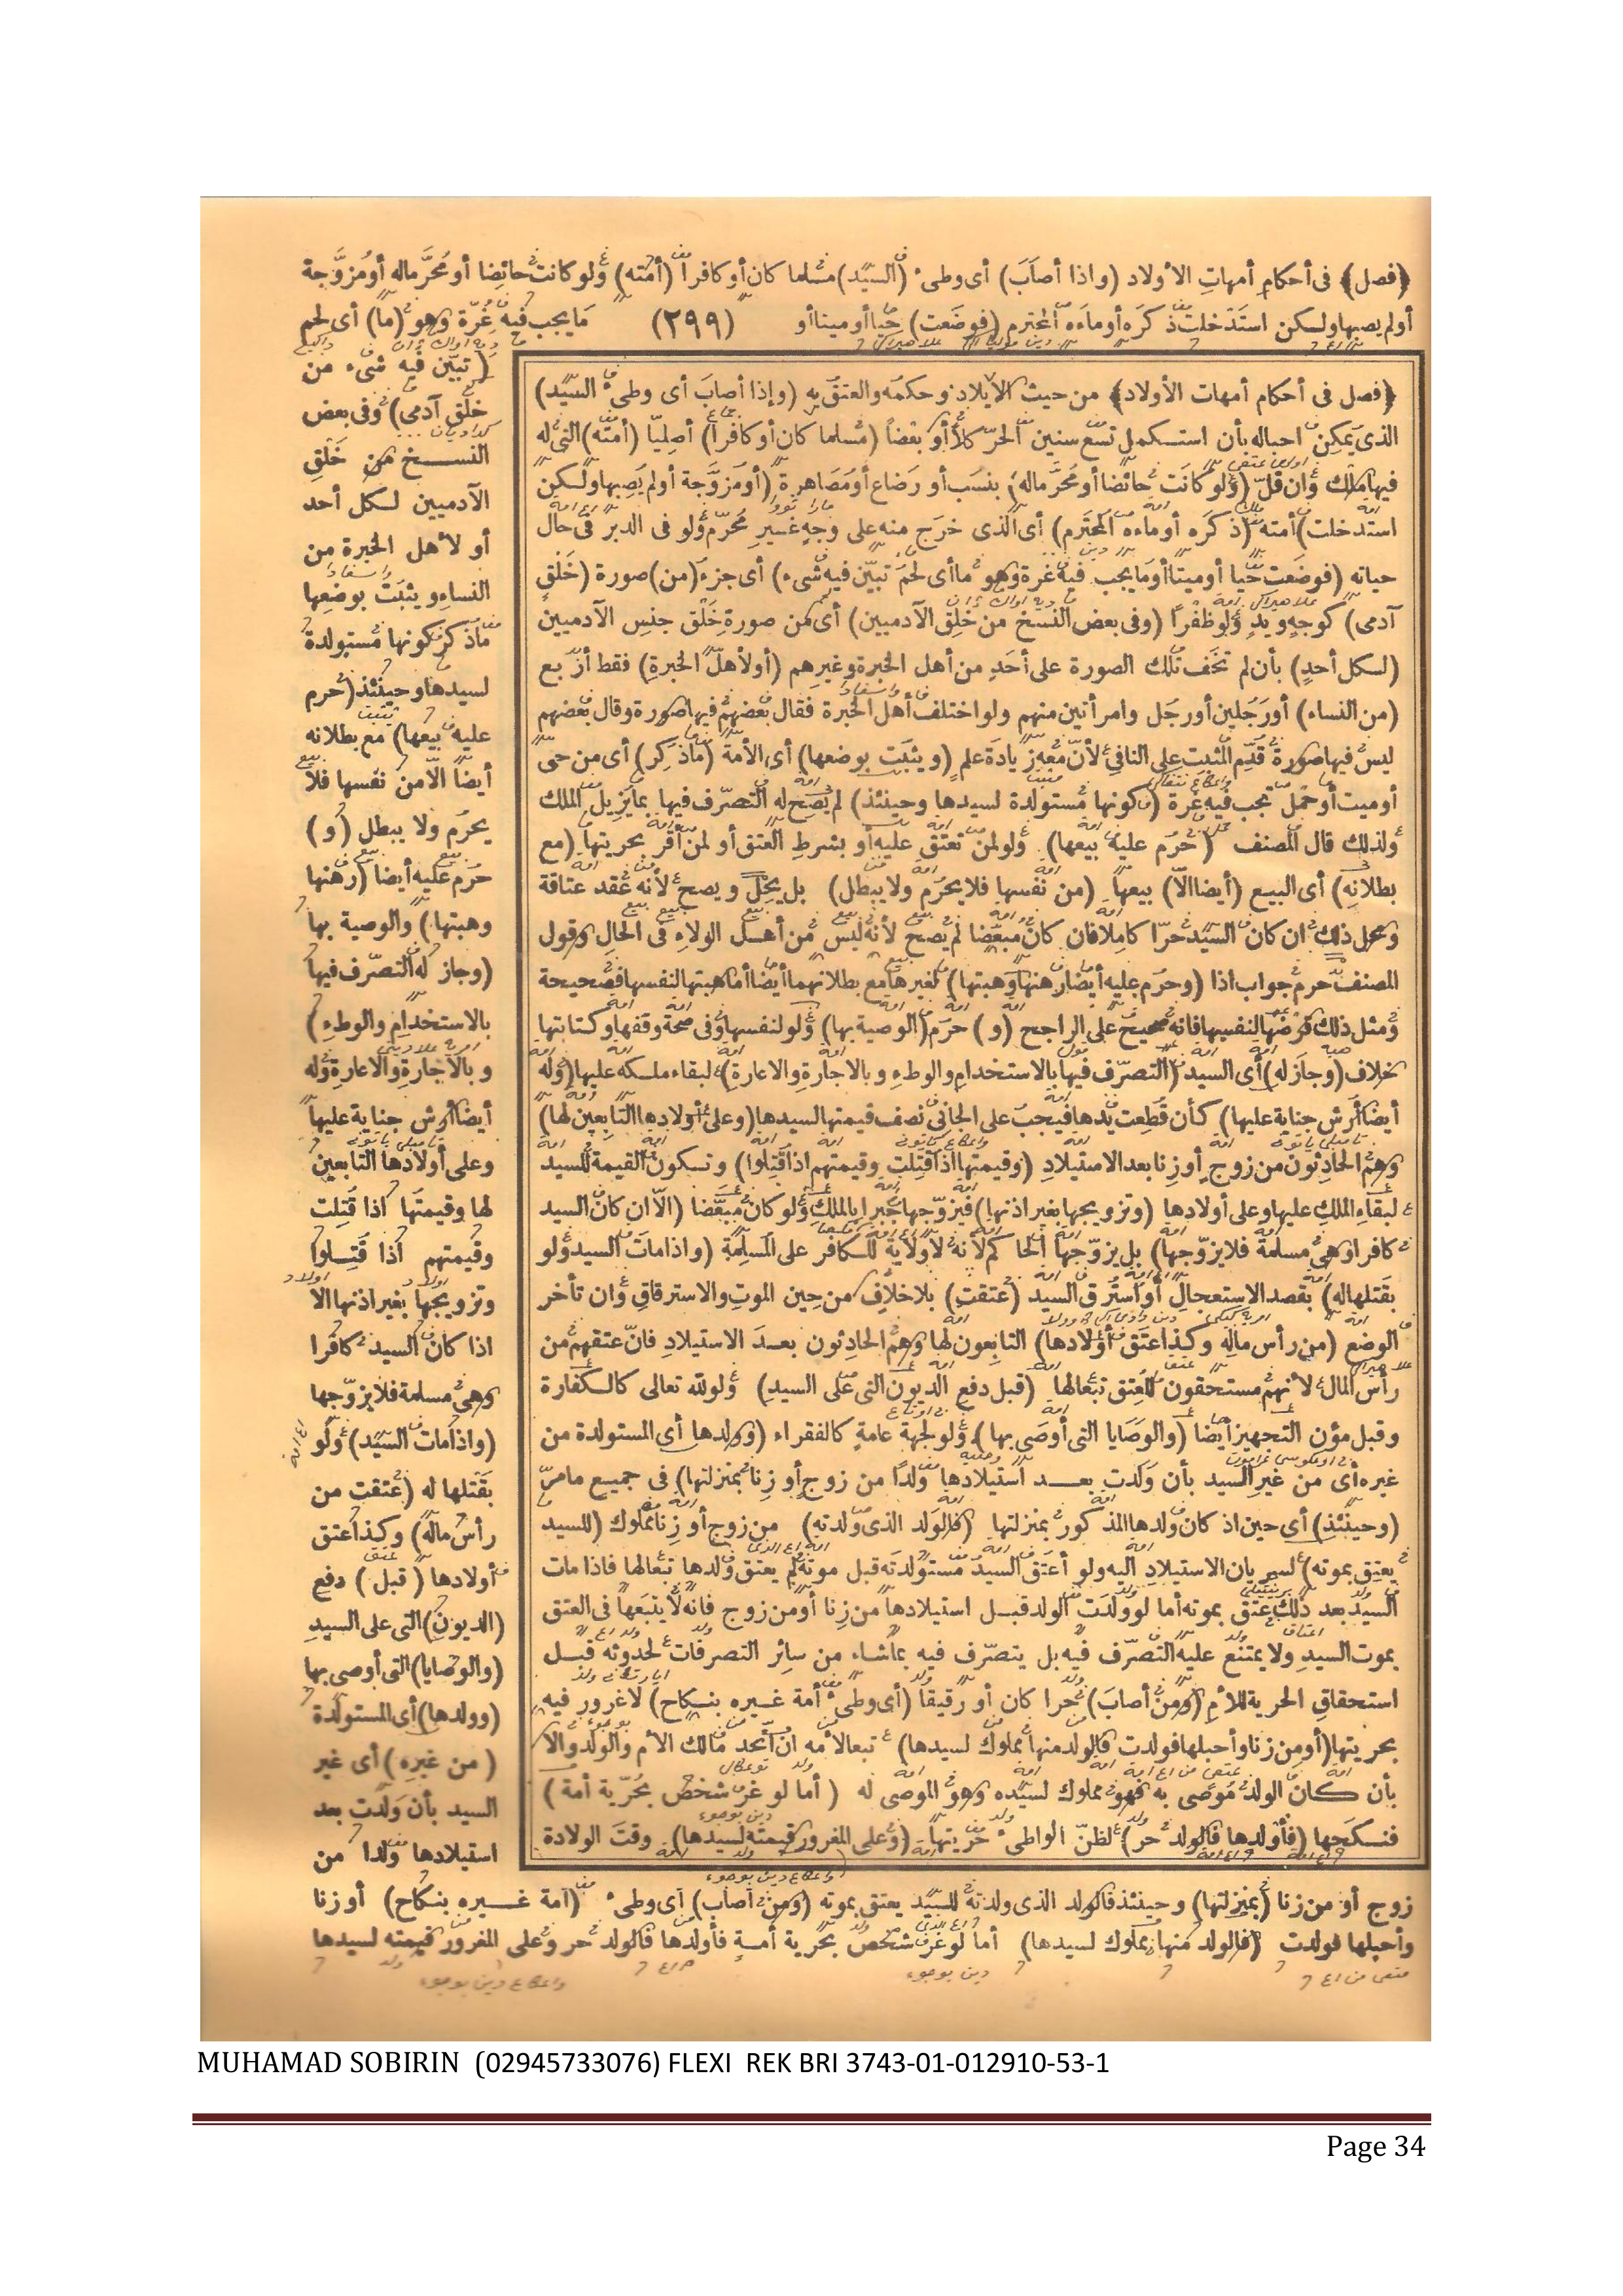 ﴿فصل﴾ فى أحكام أمهات الأولاد (واذا أصاب) أى وطىء (السيد) مسلما كان أو كافرا (أمته) ولو كانت حائضا أو محرّماله أو مزوّجة
أولم يصبها ولكن استدخلت ذكره أوماءه المحترم (فوضعت) حيا أو ميتا أو (٢٩٩) مايجب فيه غرّة وهو (ما) أى لحم
(تبيّن فيه شىء من
خلق آدمى) وفى بعض
النسخ من خلق
الآدميين لكل أحد
أو لأهل الخبرة من
النساء ويثبت بوضعها
ماذكر كونها مستولدة
لسيدها وحينئذ (حرم
عليه بيعها) مع بطلانه
أيضا الّا من نفسها فلا
يحرم ولا يبطل (و)
حرم عليه أيضا (رهنها
وهبتها) والوصية بها
(وجاز له التصرّف فيها
بالاستخدام والوطء)
وبالاجارة والاعارة وله
أيضا أرش جناية عليها
وعلى أولادها التابعين
لها وقيمتها اذا قتلت
وقيمتهم اذا قتلوا
وتزويجها بغير اذنها الا
اذا كان السيد كافرا
وهى مسلمة فلايزوّجها
(واذا مات السيد) ولو
بقتلها له (عتقت من
رأس ماله) وكذا عتق
أولادها (قبل) دفع
(الديون) التى على السيد
(والوصايا) التى أوصى بها
(وولدها) أى المستولدة
(من غيره) أى غير
السيد بأن ولدت بعد
استيلادها ولدا من
﴿فصل فى أحكام أمهات الأولاد﴾ من حيث الايلاد وحكمه والعتق به (وإذا أصاب أى وطىء السيد)
الذى يمكن احباله بأن استكمل تسع سنين الحرّ كلاّ أو بعضا (مسلما كان أو كافرا) أصليا (أمته) التى له
فيها ملك وان قلّ (ولو كانت حائضا أو محرّماله) بنسب أو رضاع أو مصاهرة (أو مزوّجة أو لم يصبها ولكن
استدخلت) أمته (ذكره أو ماءه المحترم) أى الذى خرج منه على وجه غير محرّم ولو فى الدبر فى حال
حياته (فوضعت حيا أو ميتا أو ما يجب فيه غرة وهو ما أى لحم تبيّن فيه شىء) أى جزء (من) صورة (خلق
آدمى) كوجه ويد ولو ظفرا (وفى بعض النسخ من خلق الآدميين) أى من صورة خلق جنس الآدميين
(لكل أحد) بأن لم تخف تلك الصورة على أحد من أهل الخبرة وغيرهم (أو لأهل الخبرة) فقط أربع
(من النساء) أو رجلين أو رجل وامرأتين منهم ولو اختلف أهل الخبرة فقال بعضهم فيها صورة وقال بعضهم
ليس فيها صورة قدّم المثبت على النافى لأنّ معه زيادة علم (ويثبت بوضعها) أى الأمة (ماذكر) أى من حى
أو ميت أو حمل تجب فيه غرة (كونها مستولدة لسيدها وحينئذ) لم يصح له التصرّف فيها بما يزيل الملك
ولذلك قال المصنف (حرم عليه بيعها) ولو لمن تعتق عليه أو بشرط العتق أو لمن أقر بحريتها (مع
بطلانه) أى البيع (أيضا الّا) بيعها (من نفسها فلا يحرم ولا يبطل) بل يحلّ ويصح لأنه عقد عتاقة
ومحل ذلك ان كان السيد حرّا كاملا فان كان مبعضا لم يصح لأنه ليس من أهل الولاء فى الحال وقول
المصنف حرم جواب اذا (وحرم عليه أيضا رهنها وهبتها) لغيرها مع بطلانهما أيضا أما هبتها لنفسها فصحيحة
ومثل ذلك قرضها لنفسها فانه صحيح على الراجح (و) حرم (الوصية بها) ولو لنفسها وفى صحة وقفها وكتابتها
خلاف (وجازله) أى السيد (التصرّف فيها بالاستخدام والوطء وبالاجارة والاعارة) لبقاء ملكه عليها (وله
أيضا أرش جناية عليها) كأن قطعت يدها فيجب على الجانى نصف قيمتها لسيدها (وعلى أولادها التابعين لها)
وهم الحادثون من زوج أو زنا بعد الاستيلاد (وقيمتها اذا قتلت وقيمتهم اذا قتلوا) وتكون القيمة للسيد
لبقاء الملك عليها وعلى أولادها (وتزويجها بغير اذنها) فيزوّجها جبرا بالملك ولو كان مبعّضا (الّا ان كان السيد
كافرا وهى مسلمة فلا يزوّجها) بل يزوّجها الحاكم لأنه لا ولاية للكافر على المسلمة (واذا مات السيد ولو
بقتلها له) بقصد الاستعجال أو استرق السيد (عتقت) بلا خلاف من حين الموت والاسترقاق وان تأخر
الوضع (من رأس ماله وكذا عتق أولادها) التابعون لها وهم الحادثون بعد الاستيلاد فانّ عتقهم من
رأس المال لأنهم مستحقون للعتق تبعا لها (قبل دفع الديون التى على السيد) ولو لله تعالى كالكفارة
وقبل مؤن التجهيز أيضا (والوصايا التى أوصى بها) ولو لجهة عامة كالفقراء (وولدها أى المستولدة من
غيره أى من غير السيد بأن ولدت بعد استيلادها ولدا من زوج أو زنا بمنزلتها) فى جميع مامرّ
(وحينئذ) أى حين اذ كان ولدها المذكور بمنزلتها (فالولد الذى ولدته) من زوج أو زنا مملوك (للسيد
يعتق بموته) لسريان الاستيلاد اليه ولو أعتق السيد مستولدته قبل موته لم يعتق ولدها تبعا لها فاذا مات
السيد بعد ذلك عتق بموته أما لو ولدت الولد قبل استيلادها من زنا أو من زوج فانه لا يتبعها فى العتق
بموت السيد ولا يمتنع عليه التصرّف فيه بل يتصرّف فيه بماشاء من سائر التصرفات لحدوثه قبل
استحقاق الحرية للأم (ومن أصاب) حرا كان أو رقيقا (أى وطىء أمة غيره بنكاح) لاغرور فيه
بحريتها (أو من زنا وأحبلها فولدت فالولد منها مملوك لسيدها) تبعا لأمه ان اتّحد مالك الأم والولد والا
بأن كان الولد موصى به فهو مملوك لسيده وهو الموصى له (أما لو غرّ شخص بحرّية أمة)
فنكحها (فأولدها فالولد حر) لظنّ الواطىء حريتها (وعلى المغرور قيمته لسيدها) وقت الولادة
زوج أو من زنا (بمنزلتها) وحينئذ فالولد الذى ولدته للسيد يعتق بموته (ومن أصاب) أى وطىء (أمة غيره بنكاح) أو زنا
وأحبلها فولدت (فالولد منها مملوك لسيدها) أما لو غرّ شخص بحرية أمة فأولدها فالولد حر وعلى المغرور قيمته لسيدها
MUHAMAD SOBIRIN (02945733076) FLEXI REK BRI 3743-01-012910-53-1
Page 34